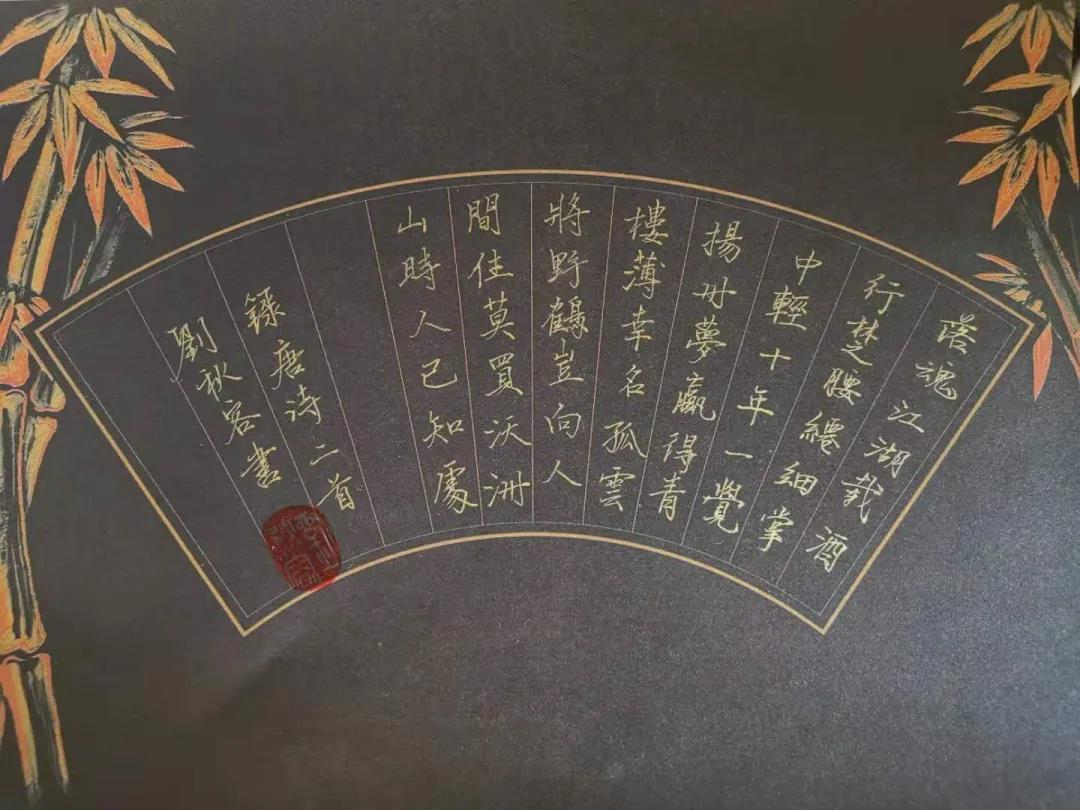 落魂江湖載酒
行楚腰纔細掌
中輕十年一覺
揚州夢贏得青
樓薄幸名孤雲
將野鶴豈向人
間住莫買沃洲
山時人已知處
錄唐诗二首
劉秋客書